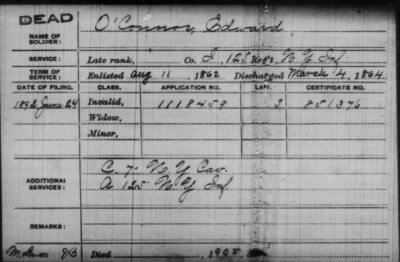 DEAD
NAME OF SOLDIER: O'Connor, Edward
SERVICE: Late rank, Co. I, 125 Reg't N Y Inf
TERM OF SERVICE: Enlisted Aug 11, 1862 Discharged March 4, 1864
DATE OF FILING. CLASS. APPLICATION NO. LAW. CERTIFICATE NO.
1892 June 24 Invalid, 1118459 3 851376
Widow,
Minor,
C. 7. N. Y Cav.
ADDITIONAL SERVICES: A 125 N. Y Inf
REMARKS:
Died 1905